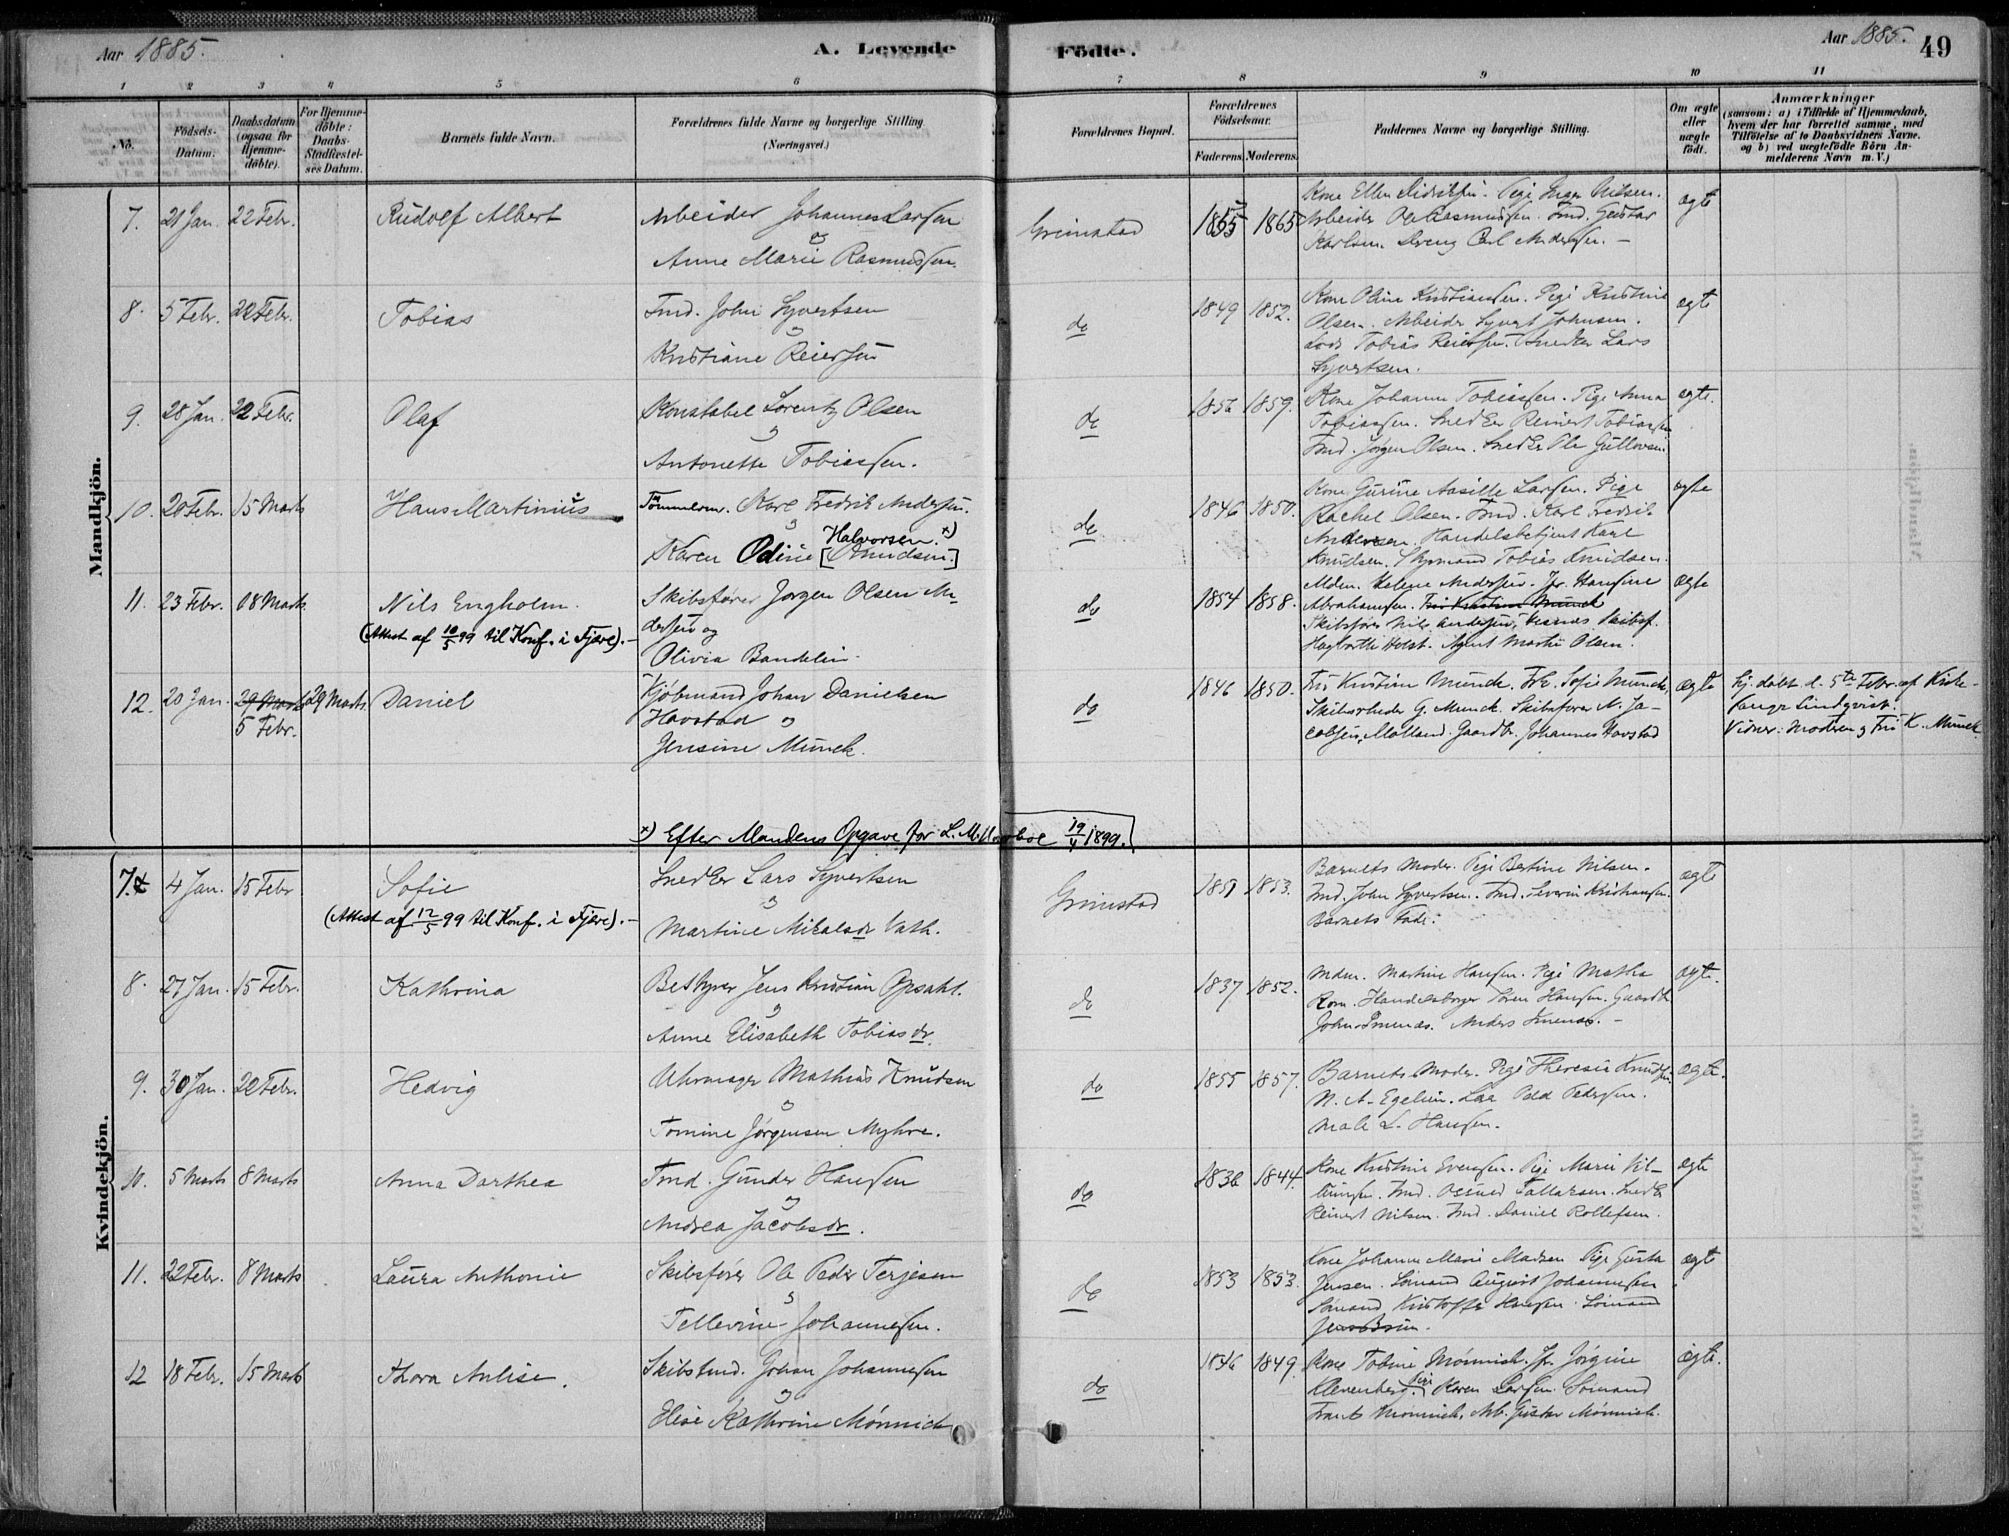 Aar 1885. A. Levende Födte. Aar 1885. 49
1 2 3 4 5 6 7 8 9 10 11
No.
Födsels-Datum.
Daabsdatum (ogsaa for Hjemme-döbte).
For Hjemme-döbte: Daabs-Stadfæstelses Datum.
Barnets fulde Navn.
Forældrenes fulde Navne og borgerlige Stilling (Næringsvei.)
Forældrenes Bopæl.
Forældrenes Födselsaar.
Faderens. Moderens.
Faddernes Navne og borgerlige Stilling.
Om ægte eller uægte födt.
Anmærkninger
(saasom: a) i Tilfælde af Hjemmedaab, hvem der har forrettet samme, med Tilföielse af to Daabsvidners Navne. og b) ved uægtefödte Börn Anmelderens Navn m.V.)
Mandkjön.
7. 21 Jan. 22 Febr. Rudolf Albert
Arbeider Johannes Larsen
og
Anne Marie Rasmussen.
Grimstad 1855 1865
Kone Ellen Didriksen. Pige Inger Nilsen.
Arbeider Ole Rasmussen. Tmd. Gustav
Karlsen. Dreng Carl Andersen. –
ægte
8. 5 Febr. 22 Febr. Tobias
Tmd. John Syvertsen
og
Kristiane Reiersen
do 1849 1852.
Kone Oline Kristiansen. Pige Kristine
Olsen. Arbeider Syvert Johnsen.
Lods Tobias Reiersen. Snedker Lars
Syvertsen.
ægte
9. 28 Jan. 22 Febr. Olaf
Konstabel Lorentz Olsen
og
Antonette Tobiassen.
do 1856 1859.
Kone Johanne Tobiassen. Pige Anna
Tobiassen. Snedker Reinert Tobiassen
Tmd. Jørgen Olsen. Snedker Ole Gullovsen
ægte.
10. 20 Febr. 15 Marts Hans Martinius
Tømmerm. Karl Fredrik Andersen.
og
Halvorsen. x)
Karen Odine [Knudsen.]
do 1846 1850.
Kone Gurine Aasille Larsen. Pige
Rachel Olsen. Tmd. Karl Fredrik
Andersen. Handelsbetjent Karl
Knudsen. Styrmand Tobias Knudsen.
ægte
11. 23 Febr. 08 Marts Nils Engholm.
(Attest af 10/5 99 til Konf. i Fjære). –
Skibsfører Jørgen Olsen An-
dersen og
Olivia Bandelin
do 1854 1858.
Mdm. Helene Andersen. Jfr. Hansine
Abrahamsen. Fru Kristine Munck
Skibsfører Nils Andersen, Skibsf.
Hagbarth Holst. Agent Martin Olsen.
ægte
12. 20 Jan. 29 Marts 5 Febr. 29 Marts. Daniel
Kjøbmand Johan Danielsen
Havstad og
Jensine Munck.
do 1846 1850.
Fru Kristine Munck. Frk. Sofie Munck.
Skibsrheder G. Munck. Skibsfører N. Ja-
cobsen, Molland. Gaardbr. Johannes Havstad
ægte
hj. døbt d. 5te Febr. af Kirke-
sanger Lindqvist.
Vidner: Moderen og Fru K. Munck.
x) Efter Mandens Opgave for L. M. 19/4 1899.
Kvindekjön.
7. 4 Jan. 15 Febr Sofie
(Attest af 12/5 99 til Konf. i Fjære). –
Snedker Lars Syvertsen
og
Martine Mikalsdr Vath.
Grimstad 1851 1853.
Barnets Moder. Pige Bertine Nilsen.
Tmd. John Syvertsen. Tmd. Severin Kristiansen.
Barnets Fader.
ægte
8. 27 Jan. 15 Febr. Kathrina
Bestyrer Jens Kristian Opsahl.
og
Anne Elisabeth Tobiasdr.
do 1837 1852.
Mdm. Martine Hansen. Pige Mathea
Rom. Handelsborger Søren Hansen. Gaardb.
John Imenæs. Anders Imenæs. –
ægte.
9. 30 Jan. 22 Febr. Hedvig
Uhrmager Mathias Knudsen
og
Tomine Jørgensen Myhre.
do 1855 1857.
Barnets Moder. Pige Theresie Knudsen
N. A. Egelund. Peder Pedersen.
Maler L. Hansen.
ægte.
10. 5 Marts 8 Marts Anna Dorthea
Tmd. Gunder Hansen
og
Andrea Jacobsdr.
do 1836 1844.
Kone Kristine Evensen. Pige Marie
Tmd. Osuld Tallaksen. Snedkr
Reinert Nilsen. Tmd. Daniel Rollefsen.
ægte
11. 22 Febr. 8 Marts Laura Anthonie
Skibsfører Ole Peder Terjesen
og
Tellevine Johannesen.
do 1853 1853.
Kone Johanne Marie Madsen Pige Gusta
Jensen. Sømand August Johannessen
Sømand Kristoffer Hansen. Sømand
Jens Bruun.
ægte
12 18 Febr. 15 Marts Thora Anlise.
Skibstmd. Johan Johannesen
og
Elise Kathrine Mönnich
do 1846 1849.
Kone Tobine Mönnich. Jfr. Jörgine
Klevenberg. Pige Karen Larsen. Sömand
Frants Mönnich. Arb. Gustav Mönnich.
ægte.